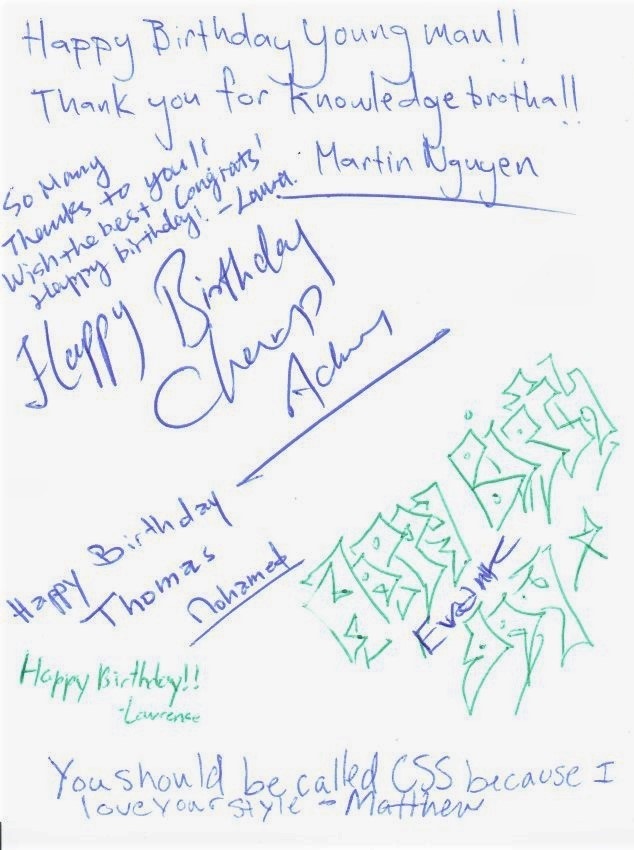 Happy Birthday Young man!!
Thank you for Knowledge brotha!!
Martin Nguyen
So Many
Thanks to you!!
Wish the best Congrats!
Happy birthday! - Laura.
Happy Birthday
Champ
Happy Birthday
Thomas
Mohamed
Happy Birthday!!
-Lawrence
You should be called CSS because I
love your style - Matthew